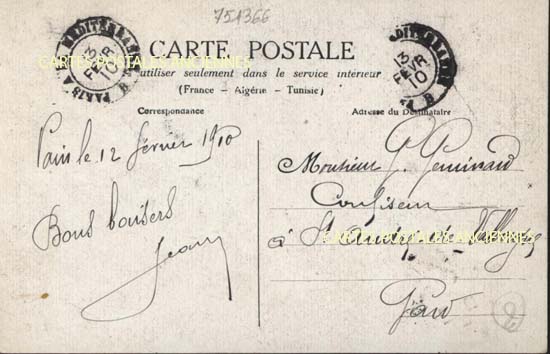 751366
CARTE POSTALE
utiliser seulement dans le service intérieur
(France - Algérie - Tunisie)
Correspondance
Adresse du Destinataire
13
FEVR
10
PARIS A
B
13
FEVR
10
B
CARTES POSTALES ANCIENNES
Paris le 12 février 1910
Bons baisers
Jeany
Monsieur P. Geminard
Confiseur
à St André de Valborgne
Gard
CARTES POSTALES ANCIENNES